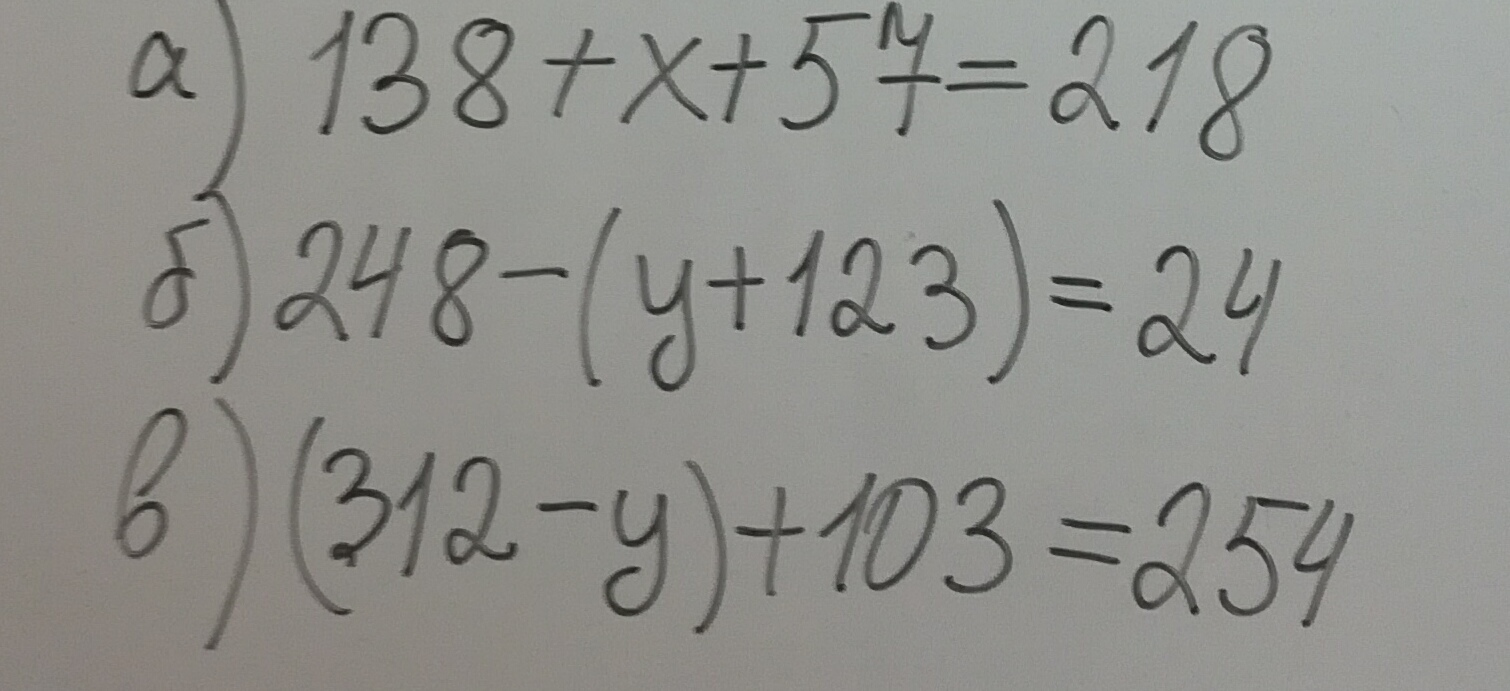 а) 138 + x + 57 = 218
б) 248 - (y + 123) = 24
в) (312 - y) + 103 = 254